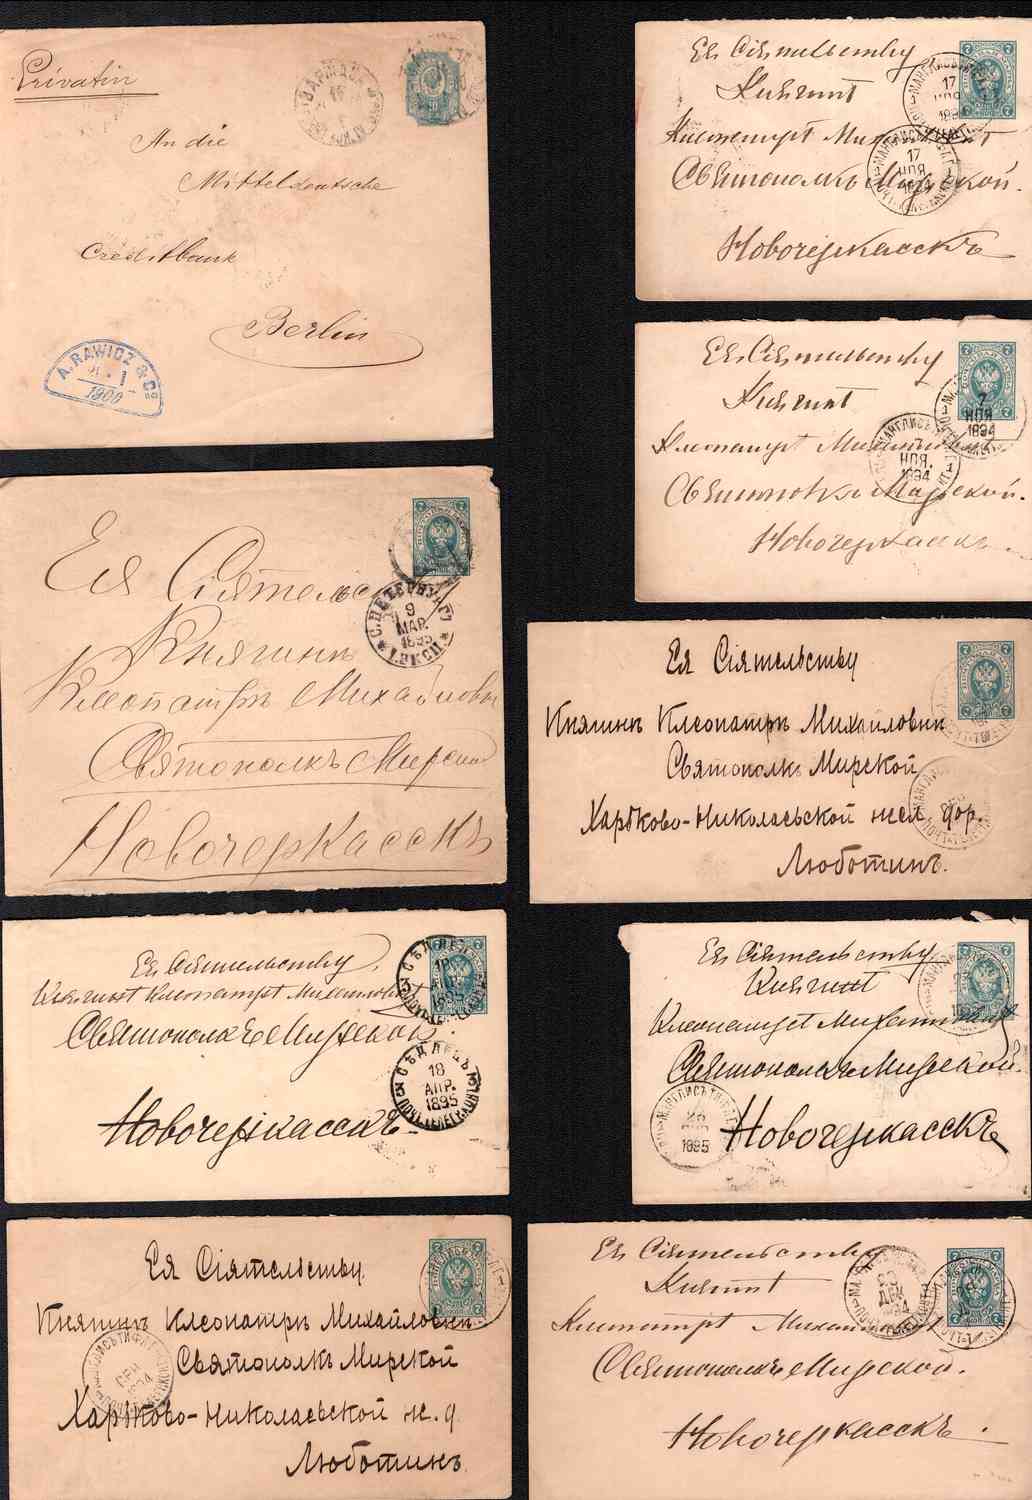 Privatim
An die
Mitteldeutsche
Creditbank
Berlin
ВАРШАВА
A. RAWICZ & Co
1900
Ея Сіятельству
Княгинѣ
Клеопатрѣ Михайловнѣ
Святополкъ Мирской.
Новочеркасскъ
17
НОЯ
1894
17
НОЯ
1894
7
Ея Сіятельству
Княгинѣ
Клеопатрѣ Михайловнѣ
Святополкъ Мирской.
Новочеркасскъ
7
НОЯ
1894
НОЯ.
1894
7 7
Ея Сіятельству
Княгинѣ
Клеопатрѣ Михайловнѣ
Святополкъ Мирской
Новочеркасскъ
С.ПЕТЕРБУРГЪ
9
МАР.
1895
1.ЭКСП.
7 7
Ея Сіятельству
Княгинѣ Клеопатрѣ Михайловнѣ
Святополкъ Мирской
Харьково-Николаевской жел дор.
Люботинъ.
7 7
Ея Сіятельству.
Княгинѣ Клеопатрѣ Михайловнѣ
Святополкъ Мирской.
Новочеркасскъ.
18
АПР.
1895
СѢДЛЕЦЪ
18
АПР.
1895
ПОЧТ.ТЕЛЕГ.КОНТ.
7
Ея Сіятельству
Княгинѣ
Клеопатрѣ Михайловнѣ
Святополкъ Мирской.
Новочеркасскъ
1895
7
Ея Сіятельству.
Княгинѣ Клеопатрѣ Михайловнѣ
Святополкъ Мирской
Харьково-Николаевской ж. д
Люботинъ.
СЕН
1894
7 7
Ея Сіятельству
Княгинѣ
Клеопатрѣ Михайловнѣ
Святополкъ Мирской.
Новочеркасскъ.
ДЕК
1894
7 7